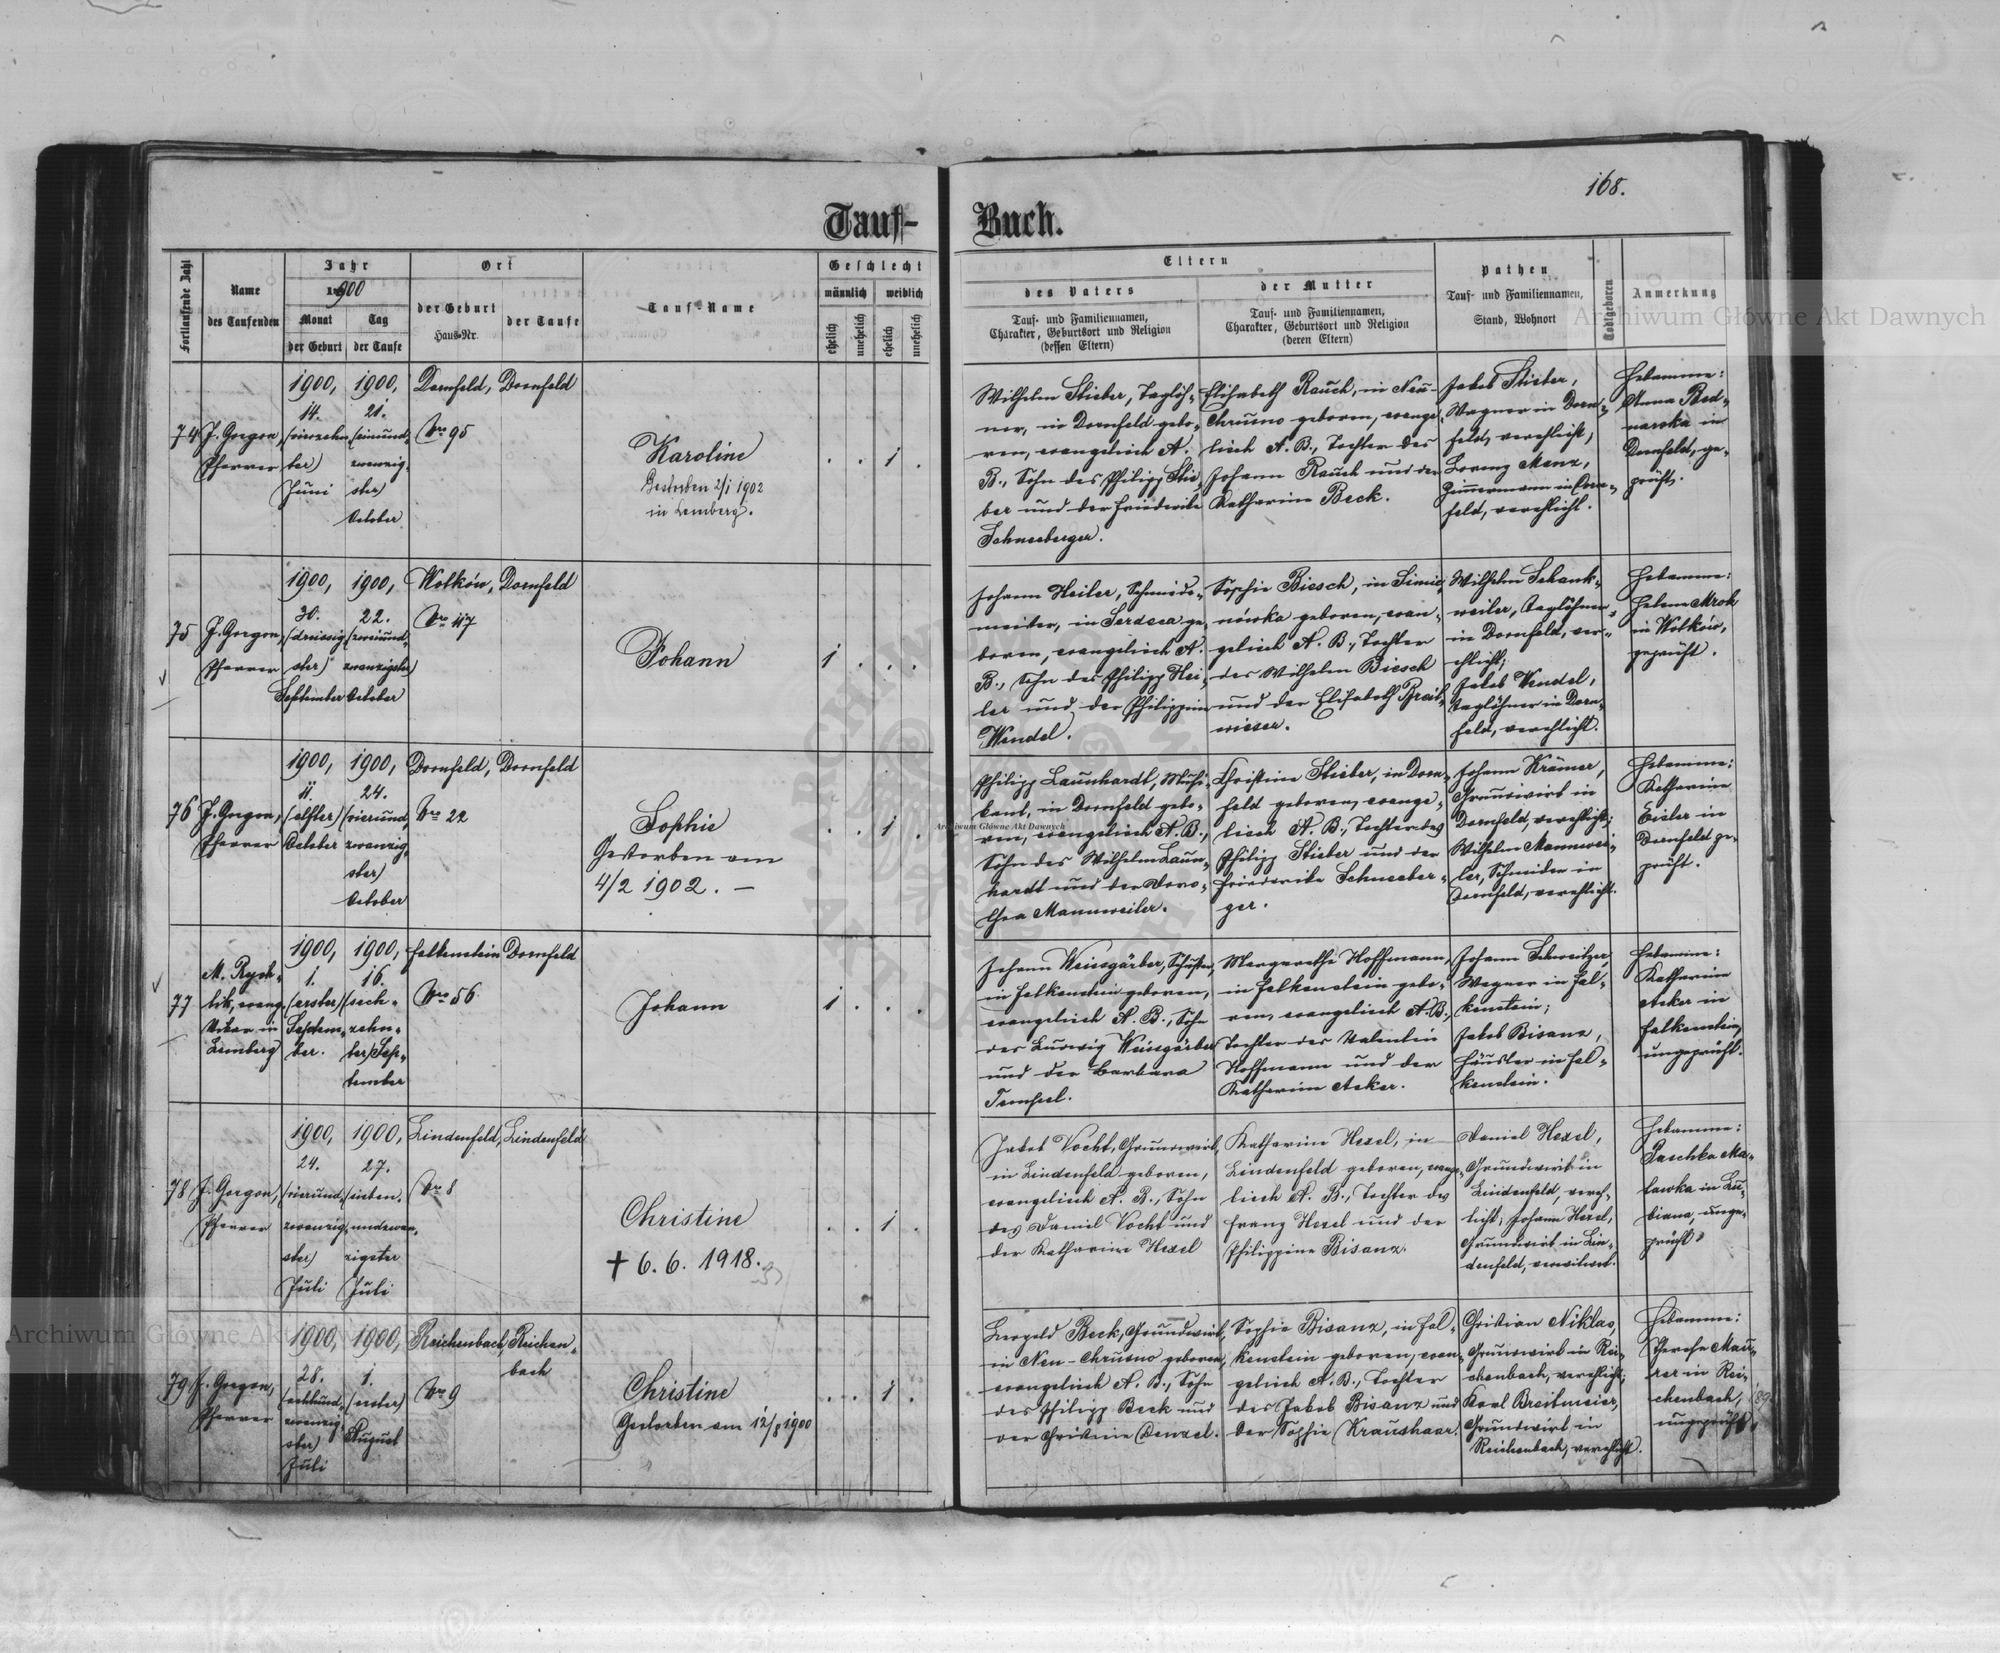 168.
Tauf- Buch.
Fortlaufende Zahl
Name
des Taufenden
Jahr
1900
Monat
der Geburt
Tag
der Taufe
Ort
der Geburt
Haus-Nr.
der Taufe
Tauf-Name
Geschlecht
männlich
weiblich
ehelich
unehelich
ehelich
unehelich
Eltern
des Vaters
Tauf- und Familiennamen,
Charakter, Geburtsort und Religion
(dessen Eltern)
der Mutter
Tauf- und Familiennamen,
Charakter, Geburtsort und Religion
(deren Eltern)
Pathen
Tauf- und Familiennamen,
Stand, Wohnort
Todtgeboren
Anmerkung
74
J. Gorgon,
Pfarrer
1900,
14.
(vierzehn
ter)
Juni
1900,
21.
(einund-
zwanzig-
ster)
October
Dornfeld,
Nro 95
Dornfeld
Karoline
Gestorben 2/1 1902
in Lemberg.
. . 1 .
Wilhelm Stieber, Taglöh-
ner, in Dornfeld gebo-
ren, evangelisch A.
B., Sohn des Philipp Stie-
ber und der Friederike
Schneeberger.
Elisabeth Rauch, in Neu-
Chrusno geboren, evange-
lisch A. B., Tochter des
Johann Rauch und der
Katharine Beck.
Jakob Stieber,
Wagner in Dorn-
feld, verehlicht;
Lorenz Manz,
Zimmermann in Dorn-
feld, verehlicht.
Hebamme:
Anna Bed-
narska in
Dornfeld, ge-
prüft.
75
J. Gorgon,
Pfarrer
1900,
30.
(dreissig
ster)
September
1900,
22.
(zweiund-
zwanzigster)
October
Wolków,
Nro 117
Dornfeld
Johann
1 . . .
Johann Heiler, Schmiede-
meister, in Serdica ge-
boren, evangelisch A.
B., Sohn des Philipp Hei-
ler und der Philippine
Wendel.
Sophie Biesch, in Simia-
nówka geboren, evan-
gelisch A. B., Tochter
des Wilhelm Biesch
und der Elisabeth Breit-
wieser.
Wilhelm Schank-
weiler, Taglöhner
in Dornfeld, ver-
ehlicht;
Jakob Wendel,
Taglöhner in Dorn-
feld, verehlicht.
Hebamme:
Helene Mrok
in Wolków,
geprüft.
76
J. Gorgon,
Pfarrer
1900,
11.
(elfter)
October
1900,
24.
(vierund-
zwanzig-
ster)
October
Dornfeld,
Nro 22
Dornfeld
Sophie
Gestorben am
4/2 1902. —
. . 1 .
Philipp Launhardt, Musi-
kant, in Dornfeld gebo-
ren, evangelisch A. B.,
Sohn des Wilhelm Laun-
hardt und der Doro-
thea Mannweiler.
Christine Stieber, in Dorn-
feld geboren, evange-
lisch A. B., Tochter des
Philipp Stieber und der
Friederike Schneeber-
ger.
Johann Krämer,
Grundwirt in
Dornfeld, verehlicht;
Wilhelm Mannwei-
ler, Schneider in
Dornfeld, verehlicht.
Hebamme:
Katharine
Eisler in
Dornfeld ge-
prüft.
77
M. Rych-
lik, evang.
Vikar in
Lemberg
1900,
1.
(erster)
Septem-
ber.
1900,
16.
(sech-
zehn-
ter) Sep-
tember
Falkenstein
Nro 56
Dornfeld
Johann
1 . . .
Johann Weissgärber, Schuster,
in Falkenstein geboren,
evangelisch A. B., Sohn
des Ludwig Weissgärber
und der Barbara
Margarethe Hoffmann,
in Falkenstein gebo-
ren, evangelisch A. B.,
Tochter des Valentin
Hoffmann und der
Katharine Acker.
Johann Schweitzer,
Wagner in Fal-
kenstein;
Jakob Bisanz,
Häusler in Fal-
kenstein.
Hebamme:
Katharine
Acker in
Falkenstein,
ungeprüft.
78
J. Gorgon,
Pfarrer
1900,
24.
(vierund-
zwanzig-
ster)
Juli
1900,
27.
(sieben-
undzwan-
zigster
Juli
Lindenfeld,
Nro 8
Lindenfeld
Christine
† 6. 6. 1918.
. . 1 .
Jakob Vocht, Grundwirt,
in Lindenfeld geboren,
evangelisch A. B., Sohn
des Daniel Vocht und
der Katharine Hexel
Katharine Hexel, in
Lindenfeld geboren, evange-
lisch A. B., Tochter des
Franz Hexel und der
Philippine Bisanz.
Daniel Hexel,
Grundwirt in
Lindenfeld, vereh-
licht; Johann Hexel,
Grundwirt in Lin-
denfeld, verwitwet.
Hebamme:
Paschka Ma-
lawka in Lu-
biana, unge-
prüft.
79
J. Gorgon,
Pfarrer
1900,
28.
(achtund-
zwanzig-
ster)
Juli
1900,
1.
(erster)
August
Reichenbach,
Nro 9
Reichen-
bach
Christine
Gestorben am 12/8 1900
. . 1 .
Leopold Beck, Grundwirt,
in Neu-Chrusno geboren,
evangelisch A. B., Sohn
des Philipp Beck und
der Christine Denzel.
Sophie Bisanz, in Fal-
kenstein geboren, evan-
gelisch A. B., Tochter
des Jakob Bisanz und
der Sophie Kraushaar.
Christian Niklas,
Grundwirt in Rei-
chenbach, verehlicht;
Karl Breitmeier,
Grundwirt in
Reichenbach, verehlicht.
Hebamme:
Therese Mau-
rer in Rei-
chenbach,
ungeprüft.
Archiwum Główne Akt Dawnych
Archiwum Główne Akt Dawnych
Archiwum Główne Akt Dawnych